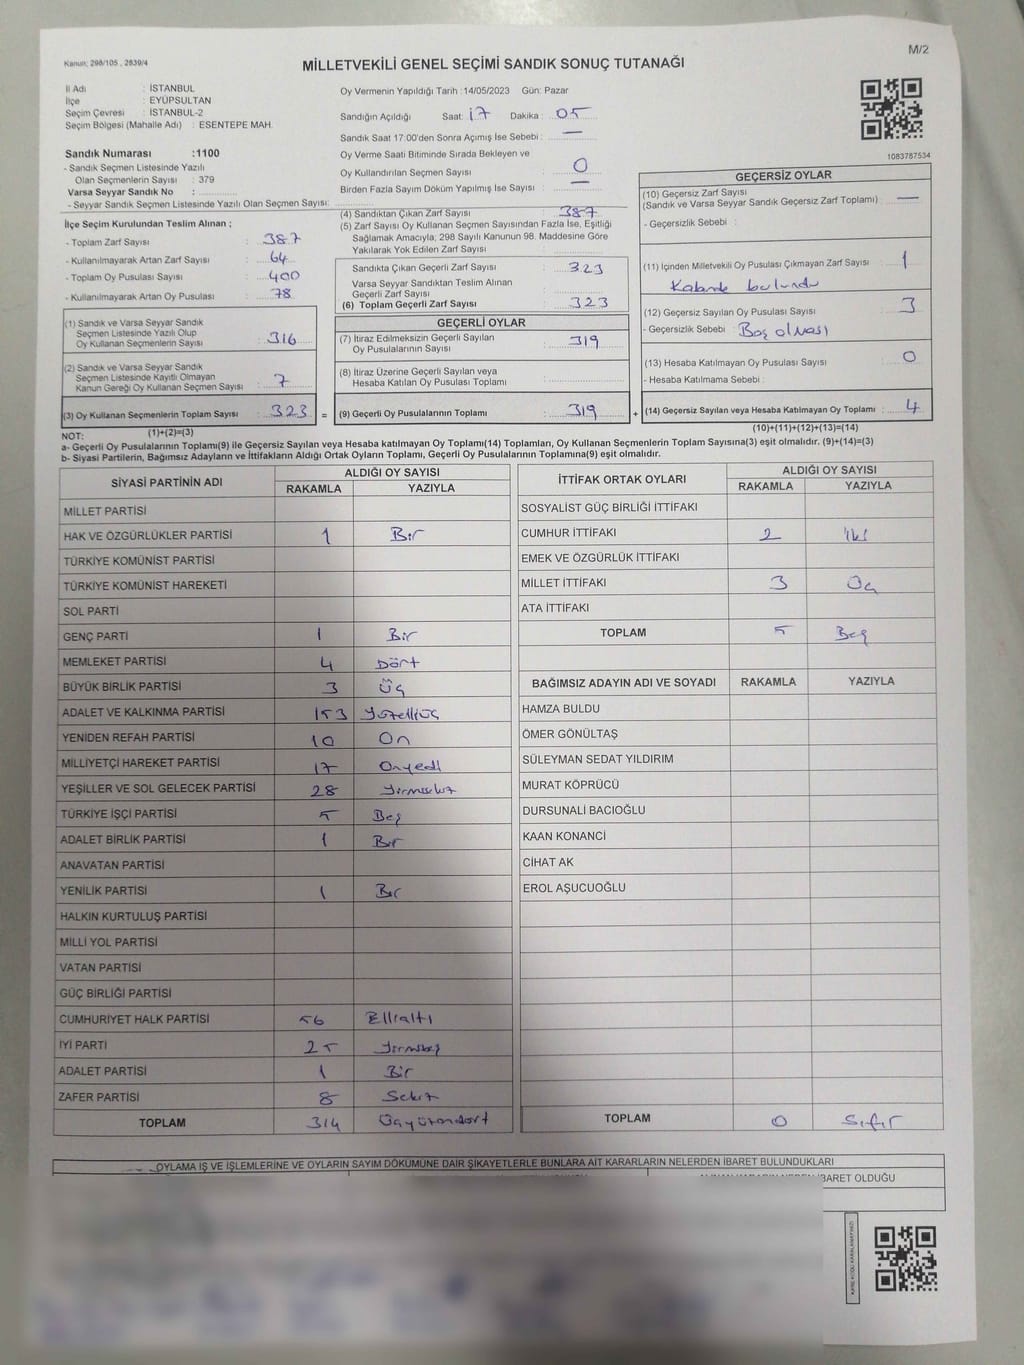 M/2
Kanun: 298/105 , 2839/4
MİLLETVEKİLİ GENEL SEÇİMİ SANDIK SONUÇ TUTANAĞI
İl Adı : İSTANBUL
İlçe : EYÜPSULTAN
Seçim Çevresi : İSTANBUL-2
Seçim Bölgesi (Mahalle Adı) : ESENTEPE MAH.
Sandık Numarası :1100
- Sandık Seçmen Listesinde Yazılı
Olan Seçmenlerin Sayısı : 379
Varsa Seyyar Sandık No :
- Seyyar Sandık Seçmen Listesinde Yazılı Olan Seçmen Sayısı:
Oy Vermenin Yapıldığı Tarih :14/05/2023 Gün: Pazar
Sandığın Açıldığı Saat: 17 Dakika : 05
Sandık Saat 17:00'den Sonra Açımış İse Sebebi : —
Oy Verme Saati Bitiminde Sırada Bekleyen ve
Oy Kullandırılan Seçmen Sayısı : 0
Birden Fazla Sayım Döküm Yapılmış İse Sayısı : —
1083787534
İlçe Seçim Kurulundan Teslim Alınan ;
- Toplam Zarf Sayısı : 387
- Kullanılmayarak Artan Zarf Sayısı : 64
- Toplam Oy Pusulası Sayısı : 400
- Kullanılmayarak Artan Oy Pusulası : 78
(1) Sandık ve Varsa Seyyar Sandık
Seçmen Listesinde Yazılı Olup
Oy Kullanan Seçmenlerin Sayısı : 316
(2) Sandık ve Varsa Seyyar Sandık
Seçmen Listesinde Kayıtlı Olmayan
Kanun Gereği Oy Kullanan Seçmen Sayısı : 7
(3) Oy Kullanan Seçmenlerin Toplam Sayısı : 323 =
(1)+(2)=(3)
(4) Sandıktan Çıkan Zarf Sayısı : 387
(5) Zarf Sayısı Oy Kullanan Seçmen Sayısından Fazla İse, Eşitliği
Sağlamak Amacıyla; 298 Sayılı Kanunun 98. Maddesine Göre
Yakılarak Yok Edilen Zarf Sayısı :
Sandıkta Çıkan Geçerli Zarf Sayısı : 323
Varsa Seyyar Sandıktan Teslim Alınan
Geçerli Zarf Sayısı :
(6) Toplam Geçerli Zarf Sayısı : 323
GEÇERLİ OYLAR
(7) İtiraz Edilmeksizin Geçerli Sayılan
Oy Pusulalarının Sayısı : 319
(8) İtiraz Üzerine Geçerli Sayılan veya
Hesaba Katılan Oy Pusulası Toplamı :
(9) Geçerli Oy Pusulalarının Toplamı : 319 +
GEÇERSİZ OYLAR
(10) Geçersiz Zarf Sayısı
(Sandık ve Varsa Seyyar Sandık Geçersiz Zarf Toplamı) : —
- Geçersizlik Sebebi :
(11) İçinden Milletvekili Oy Pusulası Çıkmayan Zarf Sayısı : 1
Kabinde bulundu
(12) Geçersiz Sayılan Oy Pusulası Sayısı : 3
- Geçersizlik Sebebi : Boş olması
(13) Hesaba Katılmayan Oy Pusulası Sayısı : 0
- Hesaba Katılmama Sebebi :
(14) Geçersiz Sayılan veya Hesaba Katılmayan Oy Toplamı : 4
(10)+(11)+(12)+(13)=(14)
NOT:
a- Geçerli Oy Pusulalarının Toplamı(9) ile Geçersiz Sayılan veya Hesaba katılmayan Oy Toplamı(14) Toplamları, Oy Kullanan Seçmenlerin Toplam Sayısına(3) eşit olmalıdır. (9)+(14)=(3)
b- Siyasi Partilerin, Bağımsız Adayların ve İttifakların Aldığı Ortak Oyların Toplamı, Geçerli Oy Pusulalarının Toplamına(9) eşit olmalıdır.
SİYASİ PARTİNİN ADI ALDIĞI OY SAYISI
RAKAMLA YAZIYLA
MİLLET PARTİSİ
HAK VE ÖZGÜRLÜKLER PARTİSİ 1 Bir
TÜRKİYE KOMÜNİST PARTİSİ
TÜRKİYE KOMÜNİST HAREKETİ
SOL PARTİ
GENÇ PARTİ 1 Bir
MEMLEKET PARTİSİ 4 Dört
BÜYÜK BİRLİK PARTİSİ 3 Üç
ADALET VE KALKINMA PARTİSİ 153 Yüzelliüç
YENİDEN REFAH PARTİSİ 10 On
MİLLİYETÇİ HAREKET PARTİSİ 17 Onyedi
YEŞİLLER VE SOL GELECEK PARTİSİ 28 Yirmisekiz
TÜRKİYE İŞÇİ PARTİSİ 5 Beş
ADALET BİRLİK PARTİSİ 1 Bir
ANAVATAN PARTİSİ
YENİLİK PARTİSİ 1 Bir
HALKIN KURTULUŞ PARTİSİ
MİLLİ YOL PARTİSİ
VATAN PARTİSİ
GÜÇ BİRLİĞİ PARTİSİ
CUMHURİYET HALK PARTİSİ 56 Ellialtı
İYİ PARTİ 25 Yirmibeş
ADALET PARTİSİ 1 Bir
ZAFER PARTİSİ 8 Sekiz
TOPLAM 314 Üçyüzondört
İTTİFAK ORTAK OYLARI ALDIĞI OY SAYISI
RAKAMLA YAZIYLA
SOSYALİST GÜÇ BİRLİĞİ İTTİFAKI
CUMHUR İTTİFAKI 2 İki
EMEK VE ÖZGÜRLÜK İTTİFAKI
MİLLET İTTİFAKI 3 Üç
ATA İTTİFAKI
TOPLAM 5 Beş
BAĞIMSIZ ADAYIN ADI VE SOYADI RAKAMLA YAZIYLA
HAMZA BULDU
ÖMER GÖNÜLTAŞ
SÜLEYMAN SEDAT YILDIRIM
MURAT KÖPRÜCÜ
DURSUNALİ BACIOĞLU
KAAN KONANCİ
CİHAT AK
EROL AŞUCUOĞLU
TOPLAM 0 Sıfır
OYLAMA İŞ VE İŞLEMLERİNE VE OYLARIN SAYIM DÖKÜMÜNE DAİR ŞİKAYETLERLE BUNLARA AİT KARARLARIN NELERDEN İBARET BULUNDUKLARI
İBARET OLDUĞU